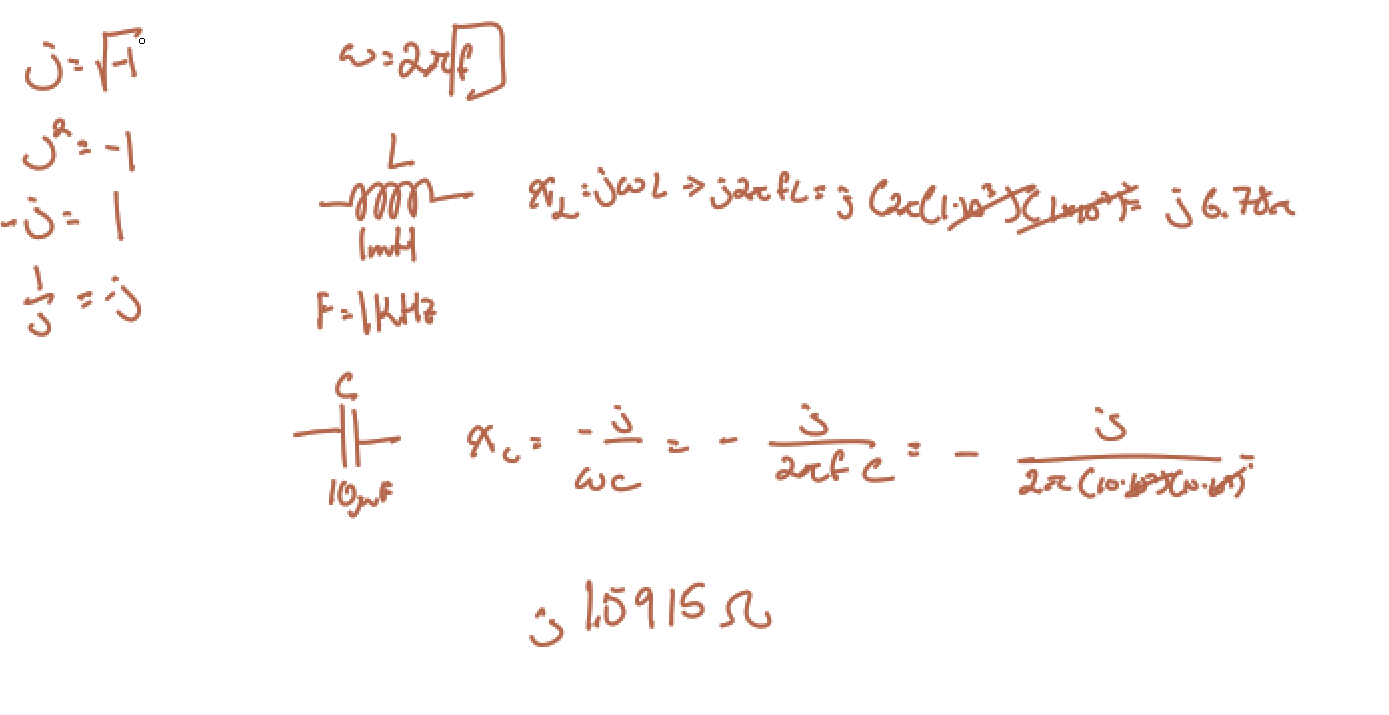 j = √-1
ω = 2πf
j² = -1
-j = 1
1/j = -j
L
1mH
X_L = jωL ⇒ j2πfL = j(2π(1·10³)(1·10⁻³) = j6.78Ω
F = 1KHz
C
10μF
X_c = -j/ωc = -j/2πfC = -j/2π(10·10³)(10·10⁻⁶) =
j 1.5915 Ω